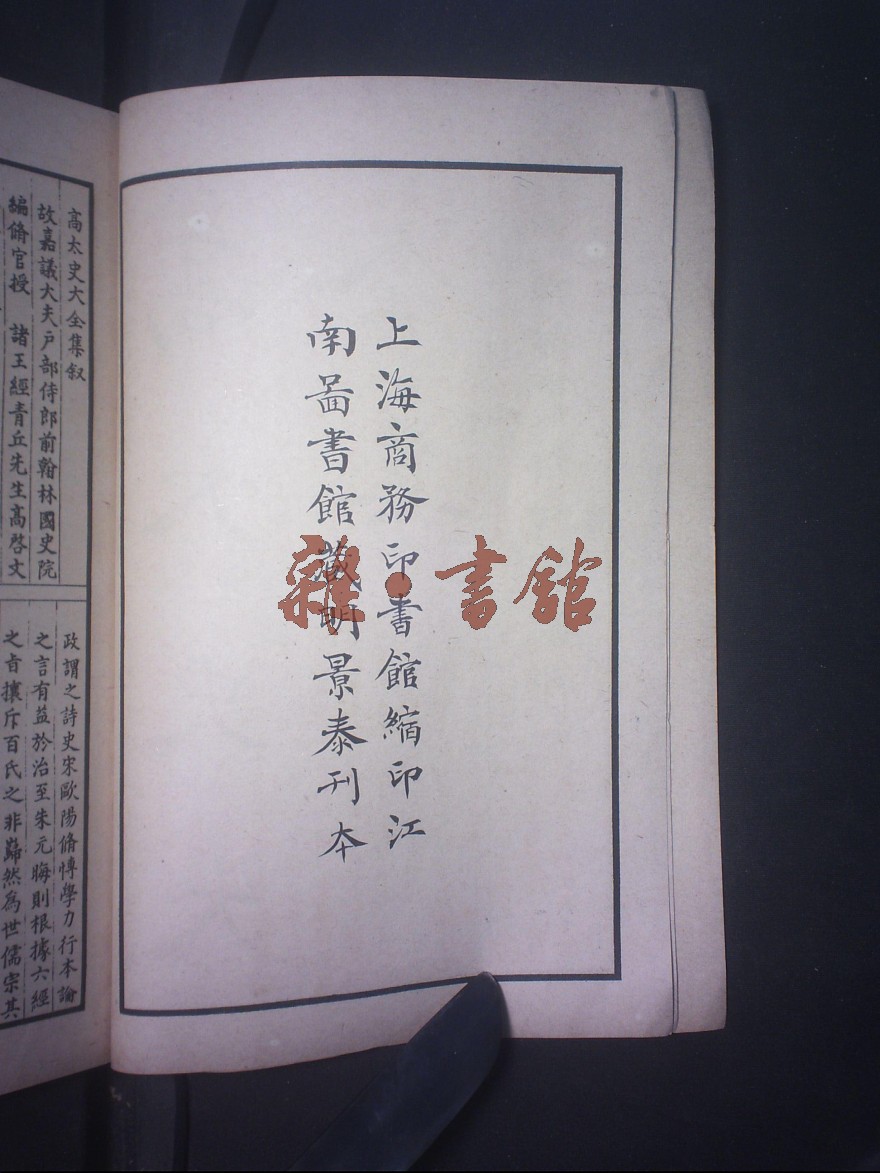 上海商務印書館縮印江
南啚書館藏明景泰刊本
雜·書館
高太史大全集叙
故嘉議大夫戸部侍郎前翰林國史院
編脩官授　諸王經青丘先生高啓文
政謂之詩史宋歐陽脩慱學力行本論
之言有益於治至朱元晦則根據六經
之㫖攘斥百氏之非巋然為世儒宗其